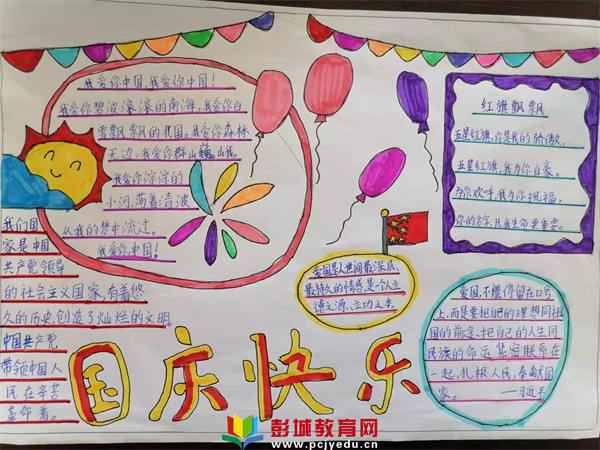 我爱你中国,我爱你中国!
我爱你碧波滚滚的南海,我爱你白
雪飘飘的北国。我爱你森林
无边,我爱你群山巍峨。
我爱你淙淙的
小河,荡着清波
从我的梦中流过。
我爱你中国!
我们国
家是中国
共产党领导
的社会主义国家,有着悠
久的历史,创造了灿烂的文明。
中国共产党
带领中国人
民在辛苦
革命着。
红旗飘飘
五星红旗,你是我的骄傲,
五星红旗,我为你自豪。
为你欢呼,我为你祝福,
你的名字,比我生命更重要。
爱国是人世间最深层、
最持久的情感,是个人立
德之源、立功之本。
爱国,不能停留在口号
上,而是要把自己的理想同祖
国的前途、把自己的人生同
民族的命运紧密联系在
一起,扎根人民,奉献国
家。 ——习近平
国庆快乐
彭城教育网
www.pcjyedu.cn